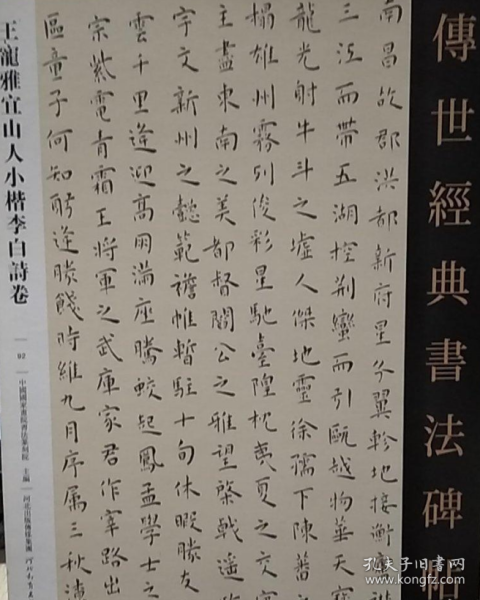 傳世經典書法碑帖
南昌故郡洪都新府星分翼軫地接衡
三江而帶五湖控荊蠻而引甌越物華天寶
龍光射牛斗之墟人傑地靈徐孺下陳蕃之
榻雄州霧列俊彩星馳臺隍枕夷夏之交
主盡東南之美都督閻公之雅望棨戟遙
宇文新州之懿範襜帷暫駐十旬休暇勝友
雲千里逢迎高朋滿座騰蛟起鳳孟學士之
宗紫電青霜王將軍之武庫家君作宰路出
區童子何知躬逢勝餞時維九月序屬三秋潦
王寵雅宜山人小楷李白詩卷
92
中國國家畫院書法篆刻院 主編
河北出版傳媒集團
孔夫子旧书网